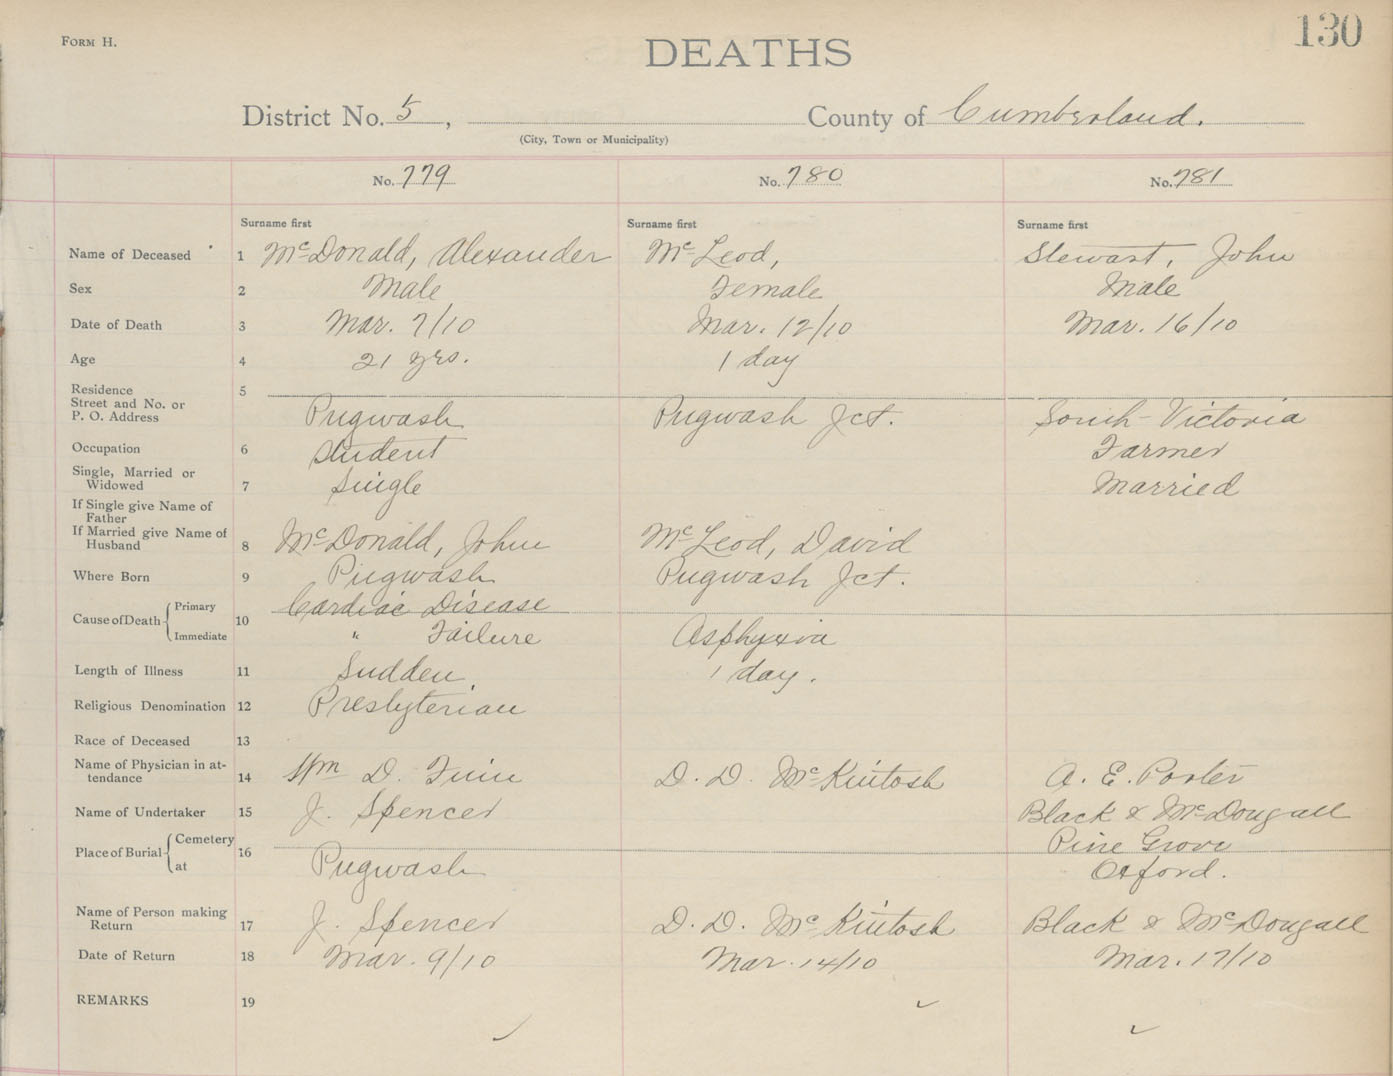 FORM H.
130
DEATHS
District No. 5, County of Cumberland.
(City, Town or Municipality)
No. 779 No. 780 No. 781
Surname first Surname first Surname first
Name of Deceased 1 McDonald, Alexander McLeod, Stewart, John
Sex 2 Male Female Male
Date of Death 3 Mar. 7/10 Mar. 12/10 Mar. 16/10
Age 4 21 yrs. 1 day
Residence 5
Street and No. or
P. O. Address Pugwash Pugwash Jct. South Victoria
Occupation 6 Student Farmer
Single, Married or
Widowed 7 Single Married
If Single give Name of
Father
If Married give Name of
Husband 8 McDonald, John McLeod, David
Where Born 9 Pugwash Pugwash Jct.
Cause of Death { Primary 10 Cardiac Disease
Immediate " Failure Asphyxia
Length of Illness 11 Sudden. 1 day.
Religious Denomination 12 Presbyterian
Race of Deceased 13
Name of Physician in at-
tendance 14 Wm D. D. D. McKintosh A. E. Porter
Name of Undertaker 15 J. Spencer Black & McDougall
Place of Burial { Cemetery 16 Pine Grove
at Pugwash Oxford.
Name of Person making
Return 17 J. Spencer D. D. McKintosh Black & McDougall
Date of Return 18 Mar. 9/10 Mar. 14/10 Mar. 17/10
REMARKS 19